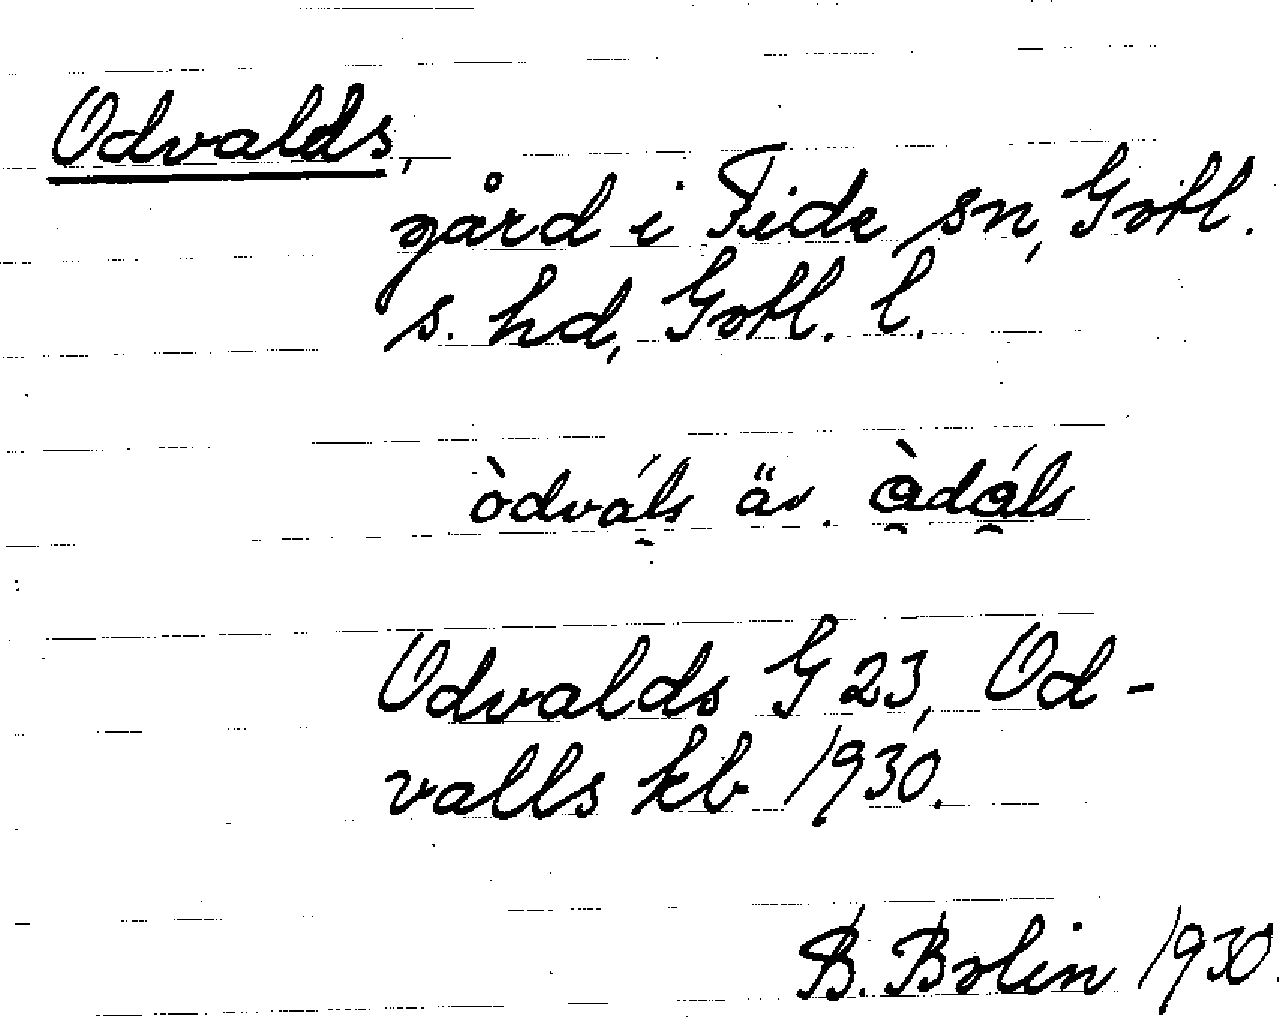 Odvalds,
gård i Fide sn, Gotl.
s. hd, Gotl. l.
òdváls äv. àdáls
Odvalds G 23, Od-
valls kb 1930.
B. Bolin 1930.